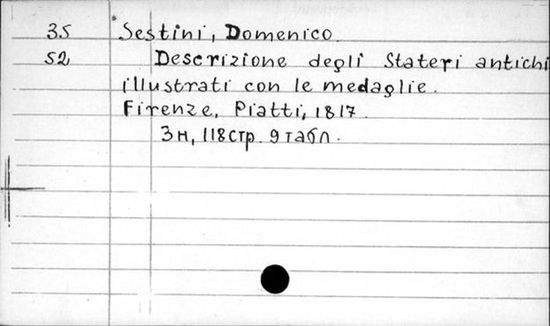 35 Sestini, Domenico.
52 Descrizione degli Stateri antichi
illustrati con le medaglie.
Firenze, Piatti, 1817.
3н, 118стр. 9 табл.